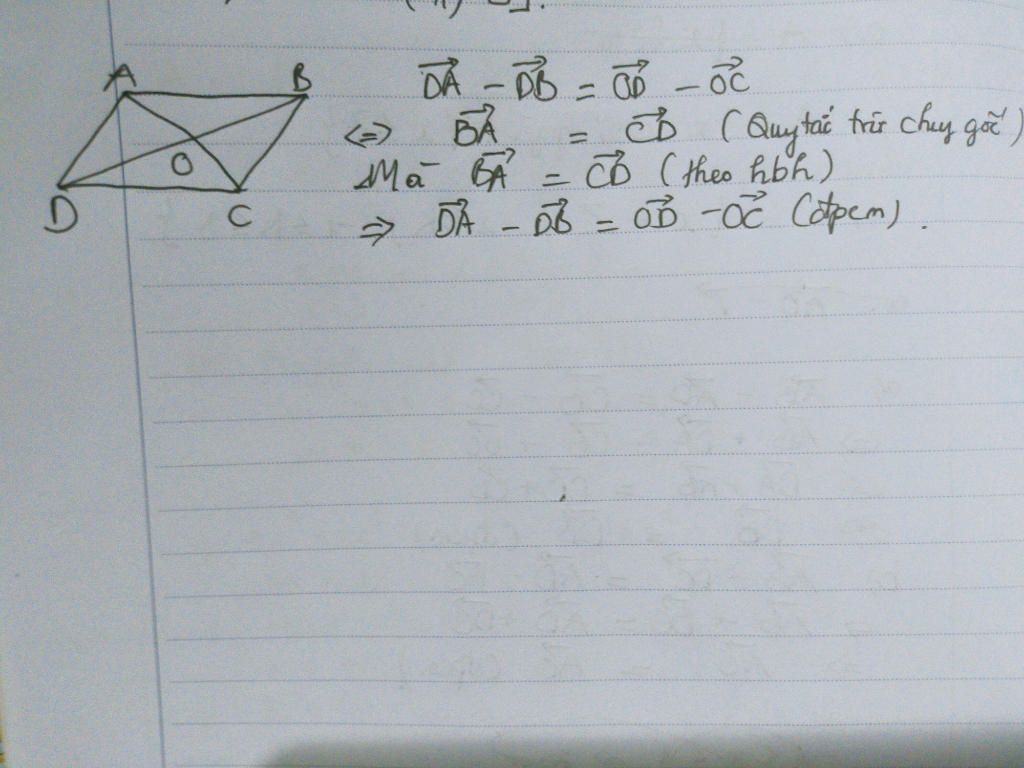 A B
D C
O
DA⃗ - DB⃗ = OD⃗ - OC⃗
<=> BA⃗ = CD⃗ (Quy tắc trừ chuy gốc)
Mà BA⃗ = CD⃗ (theo hbh)
=> DA⃗ - DB⃗ = OD⃗ - OC⃗ (đpcm).